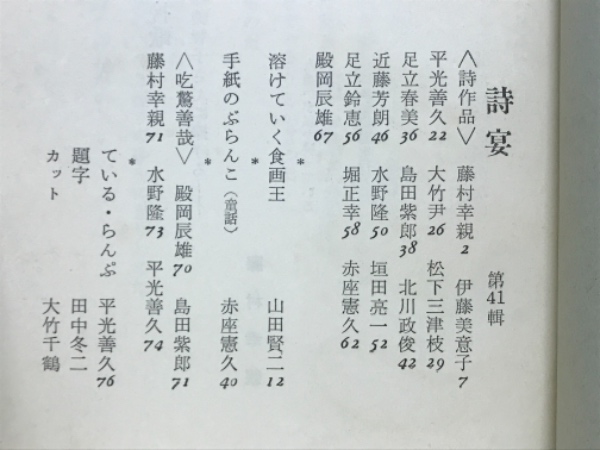 詩宴 第41輯
〈詩作品〉 藤村幸親2 伊藤美意子7
平光善久22 大竹尹26 松下三津枝29
足立春美36 島田紫郎38 北川政俊42
近藤芳朗46 水野隆50 垣田亮一52
足立鈴恵56 堀正幸58 赤座憲久62
殿岡辰雄67
*
溶けていく食画王 山田賢二12
*
手紙のぶらんこ〈童話〉 赤座憲久40
*
〈吃驚善哉〉 殿岡辰雄70 島田紫郎71
藤村幸親71 水野隆73 平光善久74
*
ている・らんぷ 平光善久76
題字 田中冬二
カット 大竹千鶴